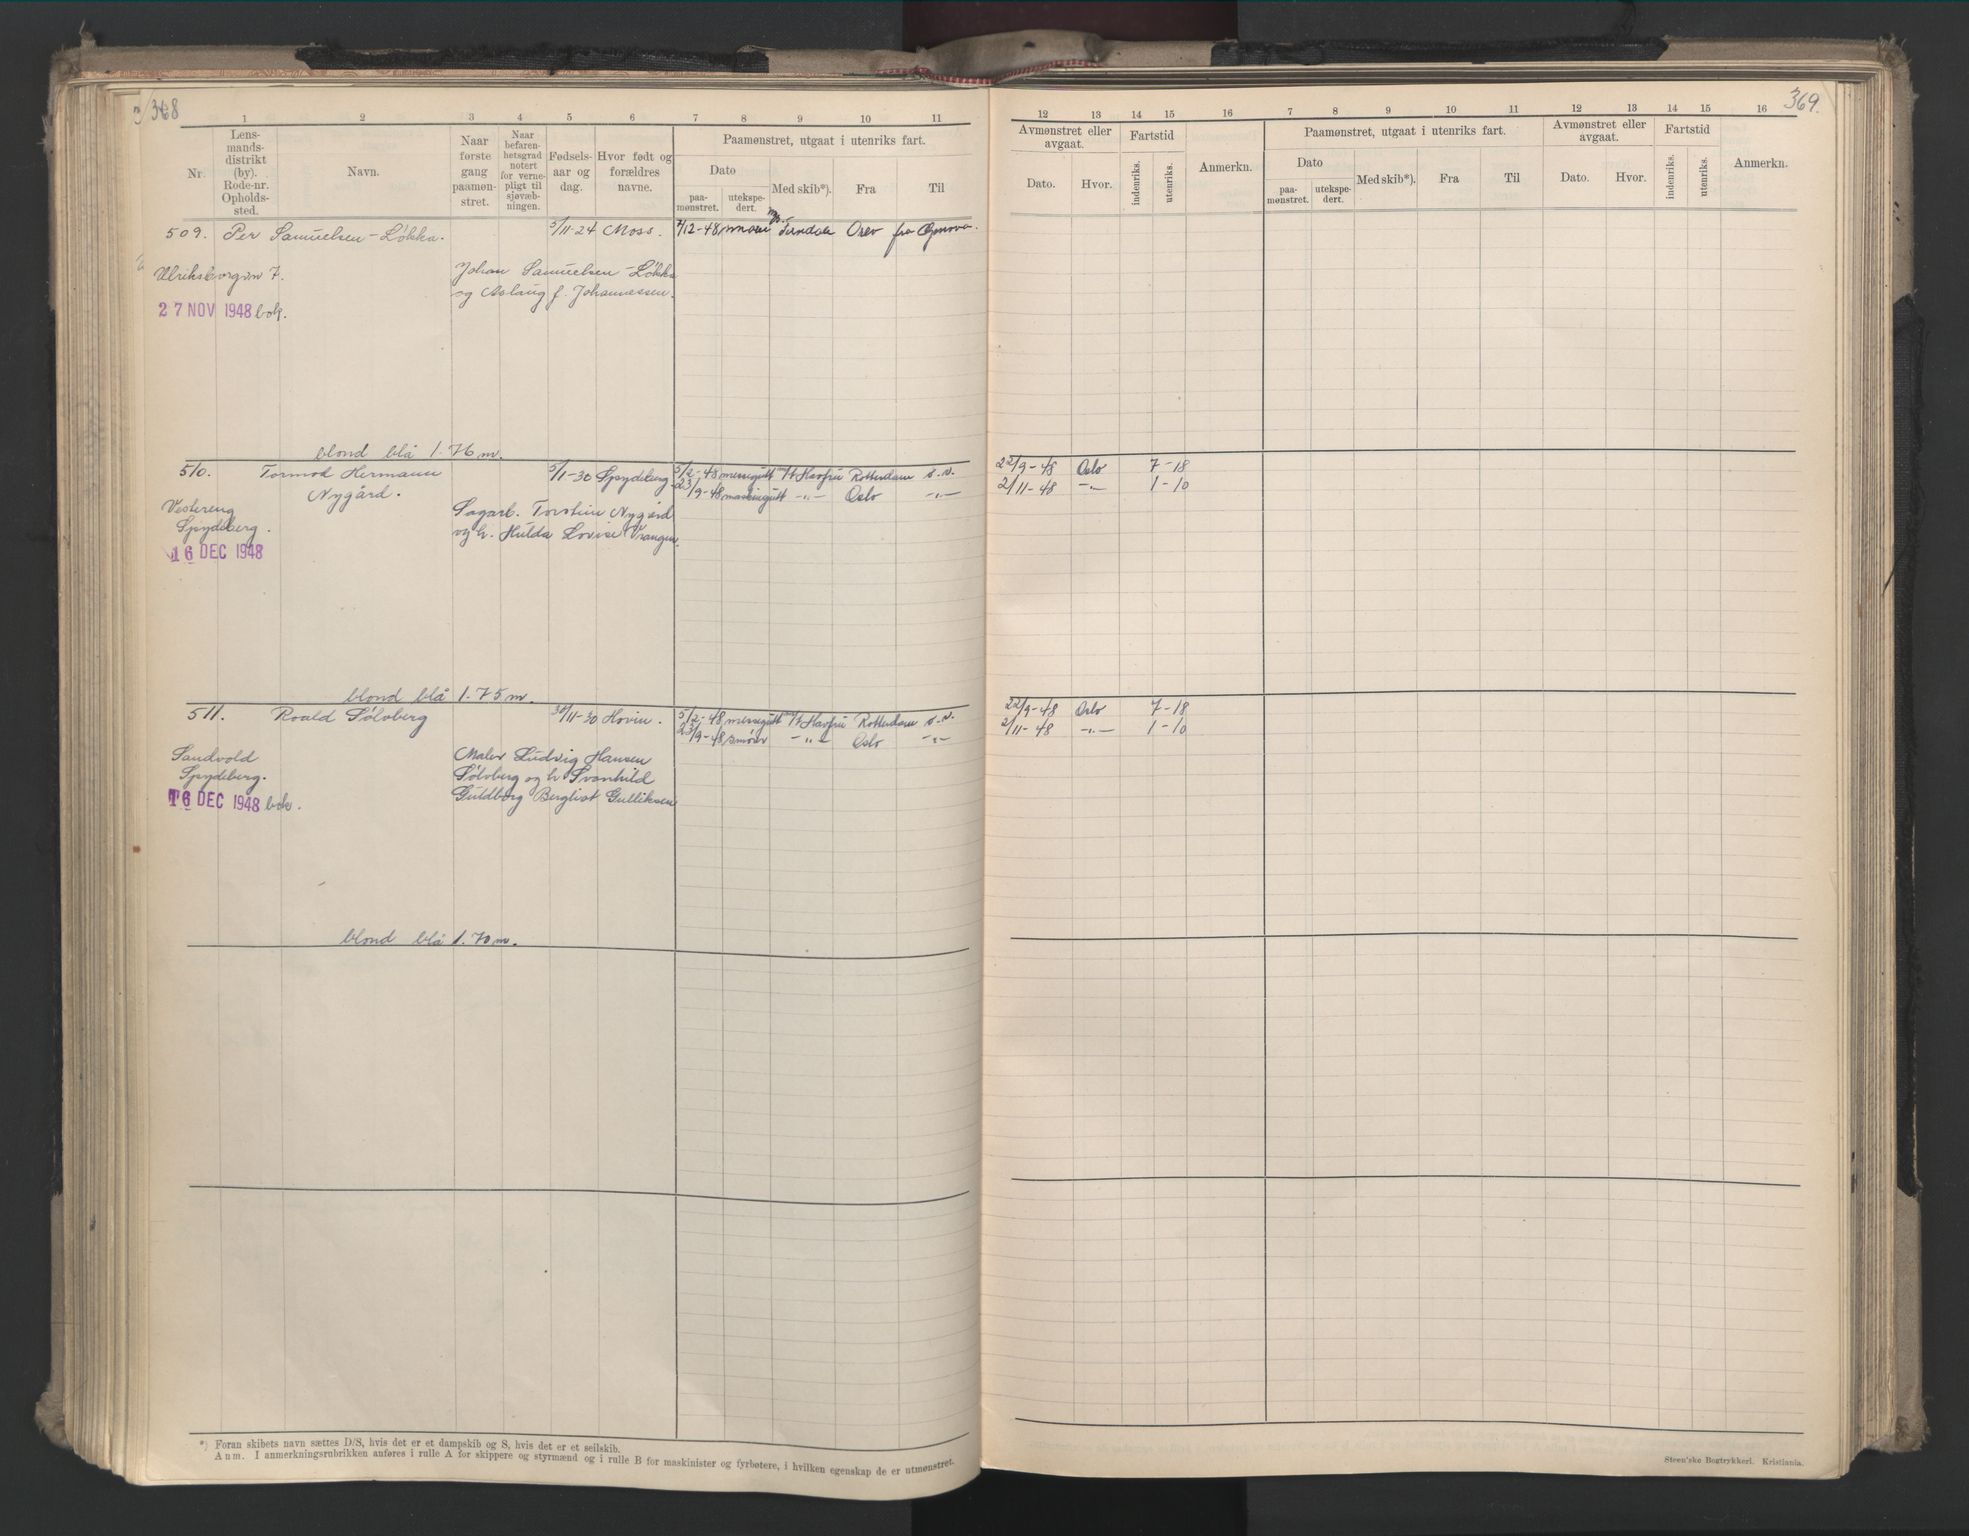 368
1 2 3 4 5 6 7 8 9 10 11
Nr.
Lens-
mands-
distrikt
(by).
Rode-nr.
Opholds-
sted.
Navn.
Naar
første
gang
paamøn-
stret.
Naar
befaren-
hetsgrad
notert
for verne-
pligt til
sjøvæb-
ningen.
Fødsels-
aar og
dag.
Hvor født og
forældres
navne.
Paamønstret, utgaat i utenriks fart.
Dato
paa-
mønstret.
utekspe-
dert.
Med skib*).
Fra
Til
509. Per Samuelsen-Løkka. 5/11-24 Moss. 7/12-48 Oslo fra Genova.
Ulriksborgvn 7. Johan Samuelsen-Løkka
og Aslaug f. Johannessen.
27 NOV 1948 bok.
blond blå 1.76 m.
510. Tormod Hermann 5/1-30 Spydeberg. 5/2-48 messegutt M/T Havfru Rotterdam s.v.
Nygård. 23/9-48 maskingutt -"- Oslo -"-
Vestereng Sagarb. Torstein Nygård
Spydeberg. og h. Hulda Lovise Vrangen.
16 DEC 1948
blond blå 1.75 m.
511. Roald Sølvberg 30/11-30 Hovin. 5/2-48 messegutt M/T Havfru Rotterdam s.v.
23/9-48 smører -"- Oslo -"-
Sandvold Maler Ludvig Hansen
Spydeberg. Sølvberg og h Svanhild
16 DEC 1948 bok. Guldborg Bergliot Gulliksen
blond blå 1.70 m.
*) Foran skibets navn sættes D/S, hvis det er et dampskib og S, hvis det er et seilskib.
Anm. I anmerkningsrubrikken anføres i rulle A for skippere og styrmænd og i rulle B for maskinister og fyrbøtere, i hvilken egenskap de er utmønstret.
369.
12 13 14 15 16 7 8 9 10 11 12 13 14 15 16
Avmønstret eller
avgaat.
Dato.
Hvor.
Fartstid
indenriks.
utenriks.
Anmerkn.
Paamønstret, utgaat i utenriks fart.
Dato
paa-
mønstret.
utekspe-
dert.
Med skib*).
Fra
Til
Avmønstret eller
avgaat.
Dato.
Hvor.
Fartstid
indenriks.
utenriks.
Anmerkn.
22/9-48 Oslo 7-18
2/11-48 -"- 1-10
22/9-48 Oslo 7-18
2/11-48 -"- 1-10
Steen'ske Bogtrykkeri. Kristiania.